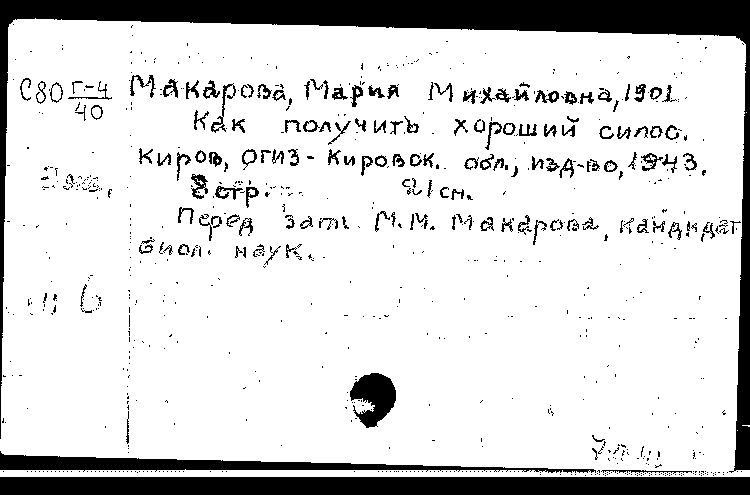 С80 Г-4/40 Макарова, Мария Михайловна, 1901
Как получить хороший силос.
Киров, ОГИЗ - Кировск. обл., изд-во, 1943.
экз. 8 стр. 21 см.
Перед загл. М.М. Макарова, кандидат
биол. наук.
6